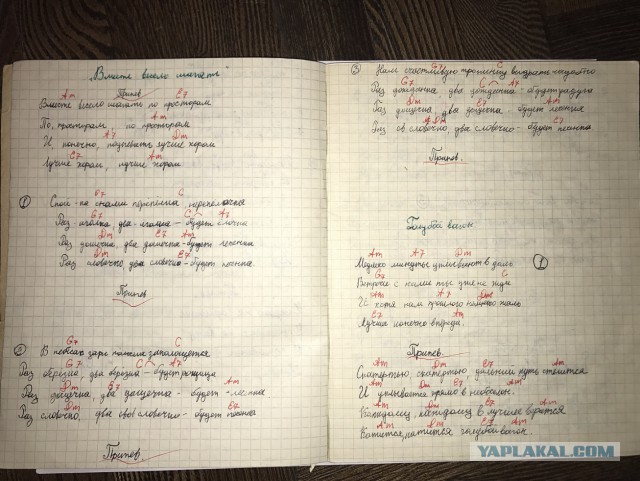 "Вместе весело шагать"
Припев
Am E7
Вместе весело шагать по просторам
Am
По, просторам, по просторам
A7 Dm
И, конечно, подпевать лучше хором
E7 Am
лучше хором, лучше хором
① E7 C
Спой-ка с нами перепёлка, перепёлочка
G7 C A7
Раз иголка, два иголка - будет ёлочка
Dm E7 Am
Раз дощечка два дощечка - будет лесенка
Dm E7
Раз словечко, два словечко - будет песенка
Припев
② G7 C
В небесах зари полоска заполощется
G7 C A7
Раз берёзка, два берёзка - будет рощица
Dm G7 Am
Раз дощечка, два дощечка - будет лесенка
Dm E7
Раз словечко, два словечко - будет песенка
Припев.
③ G7 C
Нам счастливую тропинку выбрать надобно
G7 C A7
Раз дождинка, два дождинка - будет радуга
Dm E7 Am
Раз дощечка, два дощечка - будет лесенка
Dm
Раз словечко, два словечко - будет песенка
Припев.
Голубой вагон
Am A7 Dm ①
Медленно минуты уплывают в даль
G7 C
Встречи с ними ты уже не жди
Am A7 Dm
И хотя нам прошлого немного жаль
E7 Am
Лучшее конечно впереди.
Припев.
Am Dm E7 Am
Скатертью, скатертью, дальний путь стелится
Am Dm E7 Am
И упирается прямо в небосклон.
Am Dm E7 Am
Каждому, каждому в лучшее верится
Am Dm E7 Am
Катится, катится голубой вагон.
YAPLAKAL.COM